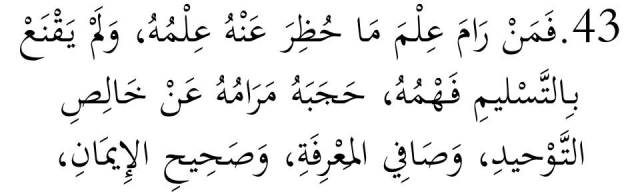 43.فَمَنْ رَامَ عِلْمَ مَا حُظِرَ عَنْهُ عِلْمُهُ، وَلَمْ يَقْنَعْ
بِالتَّسْلِيمِ فَهْمُهُ، حَجَبَهُ مَرَامُهُ عَنْ خَالِصِ
التَّوْحيدِ، وَصَافِي المَعْرِفَةِ، وَصَحِيحِ الإِيمَانِ،